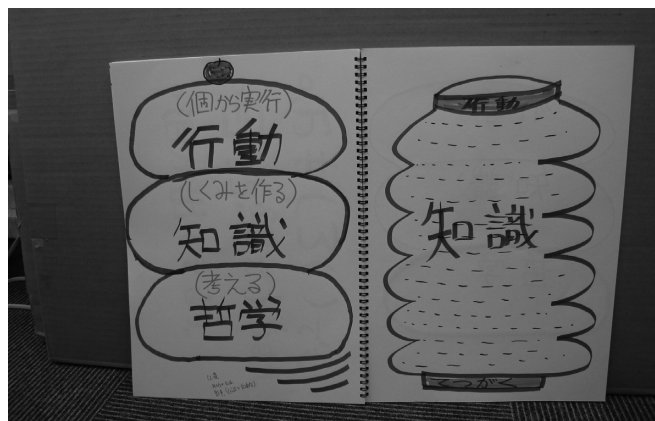 (個から実行)
行動
(しくみを作る)
知識
(考える)
哲学
行動
知識
てつがく